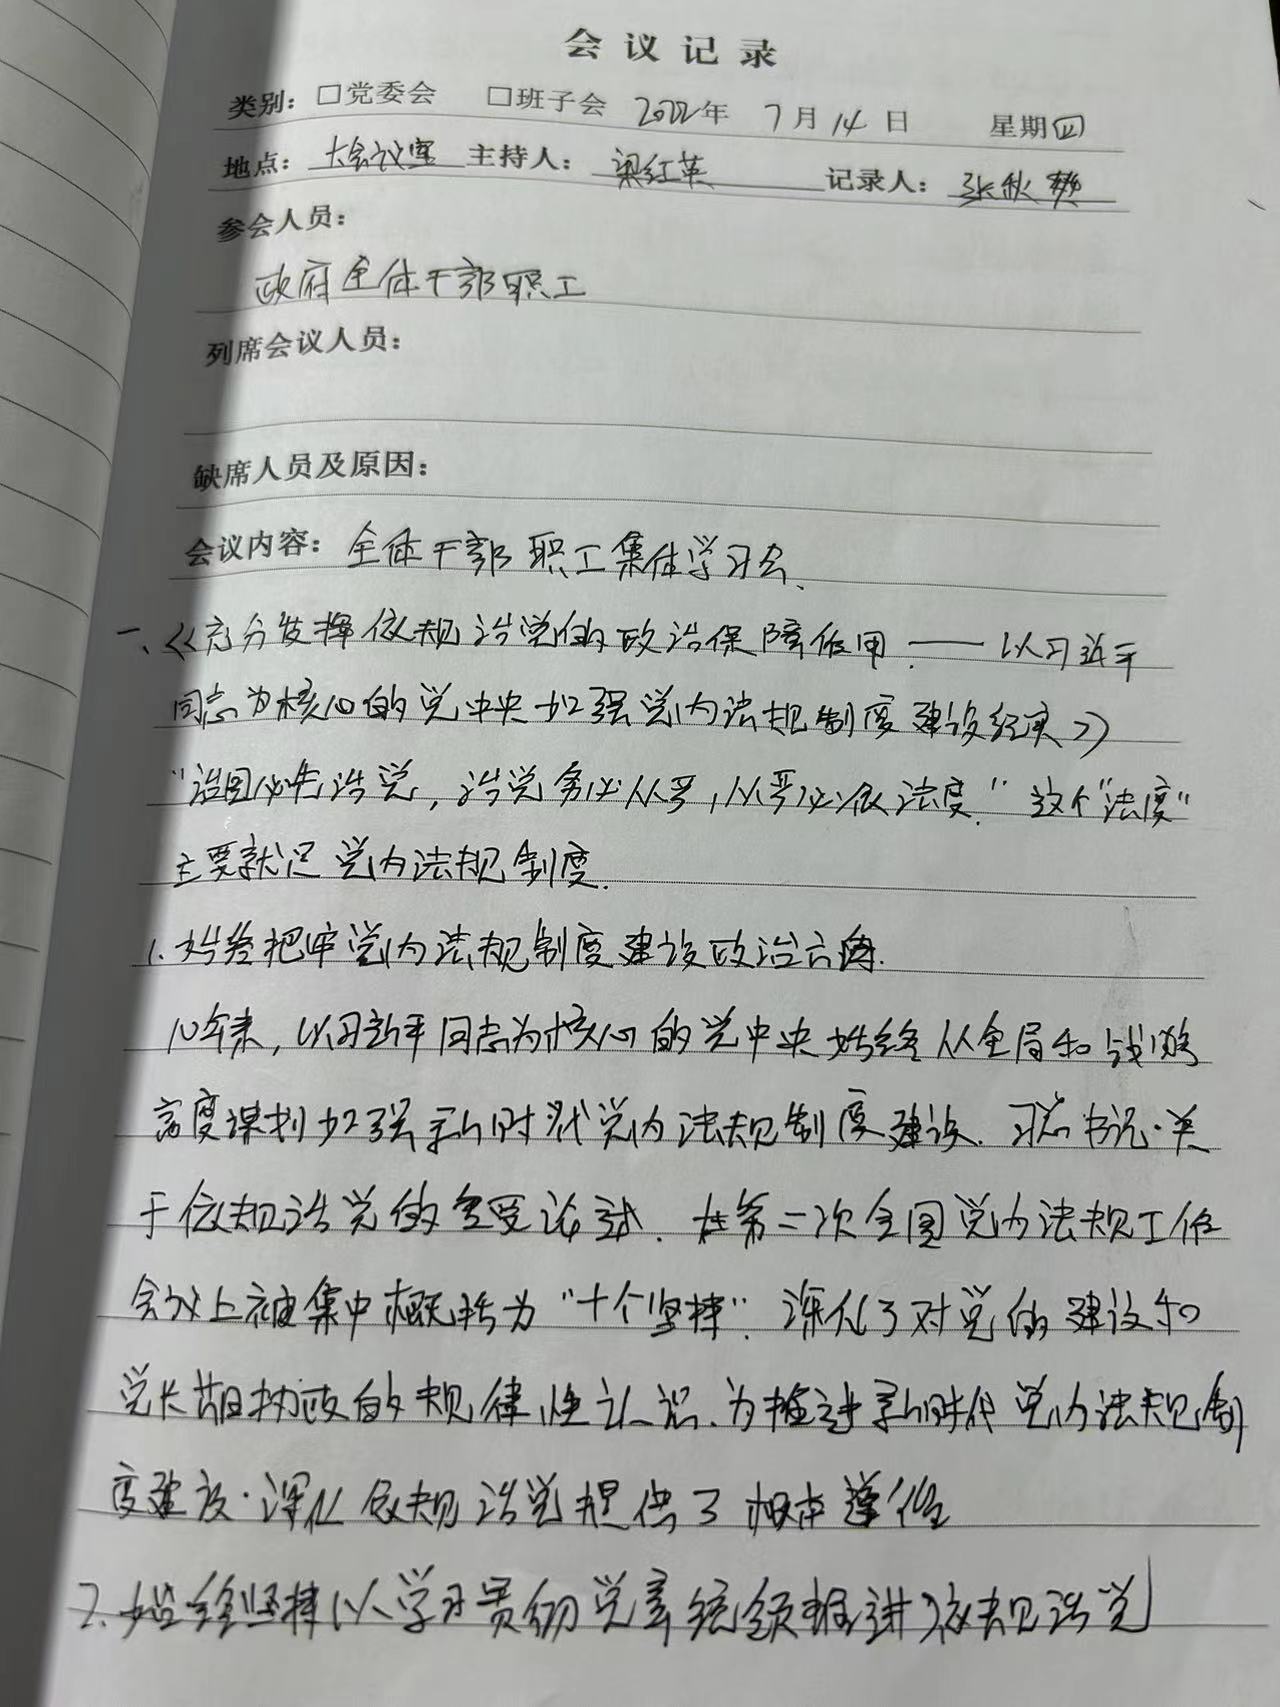 会议记录
类别：□党委会 □班子会 2022年 7月14日 星期四
地点：大会议室 主持人：梁红英 记录人：张秋
参会人员：
政府全体干部职工
列席会议人员：
缺席人员及原因：
会议内容：全体干部职工集体学习会、
一、《充分发挥依规治党的政治保障作用——以习近平
同志为核心的党中央加强党内法规制度建设纪实》
“治国必先治党，治党务必从严，从严必依法度.”这个“法度”
主要就是党内法规制度.
1.始终把牢党内法规制度建设政治方向.
10年来，以习近平同志为核心的党中央始终从全局和战略
高度谋划加强新时代党内法规制度建设.习总书记·关
于依规治党的重要论述.在第二次全国党内法规工作
会议上被集中概括为“十个坚持”.深化了对党的建设和
党长期执政的规律性认识、为推进新时代党内法规制
度建设·深化依规治党提供了根本遵循
2.始终坚持以学习贯彻党章统领推进依规治党